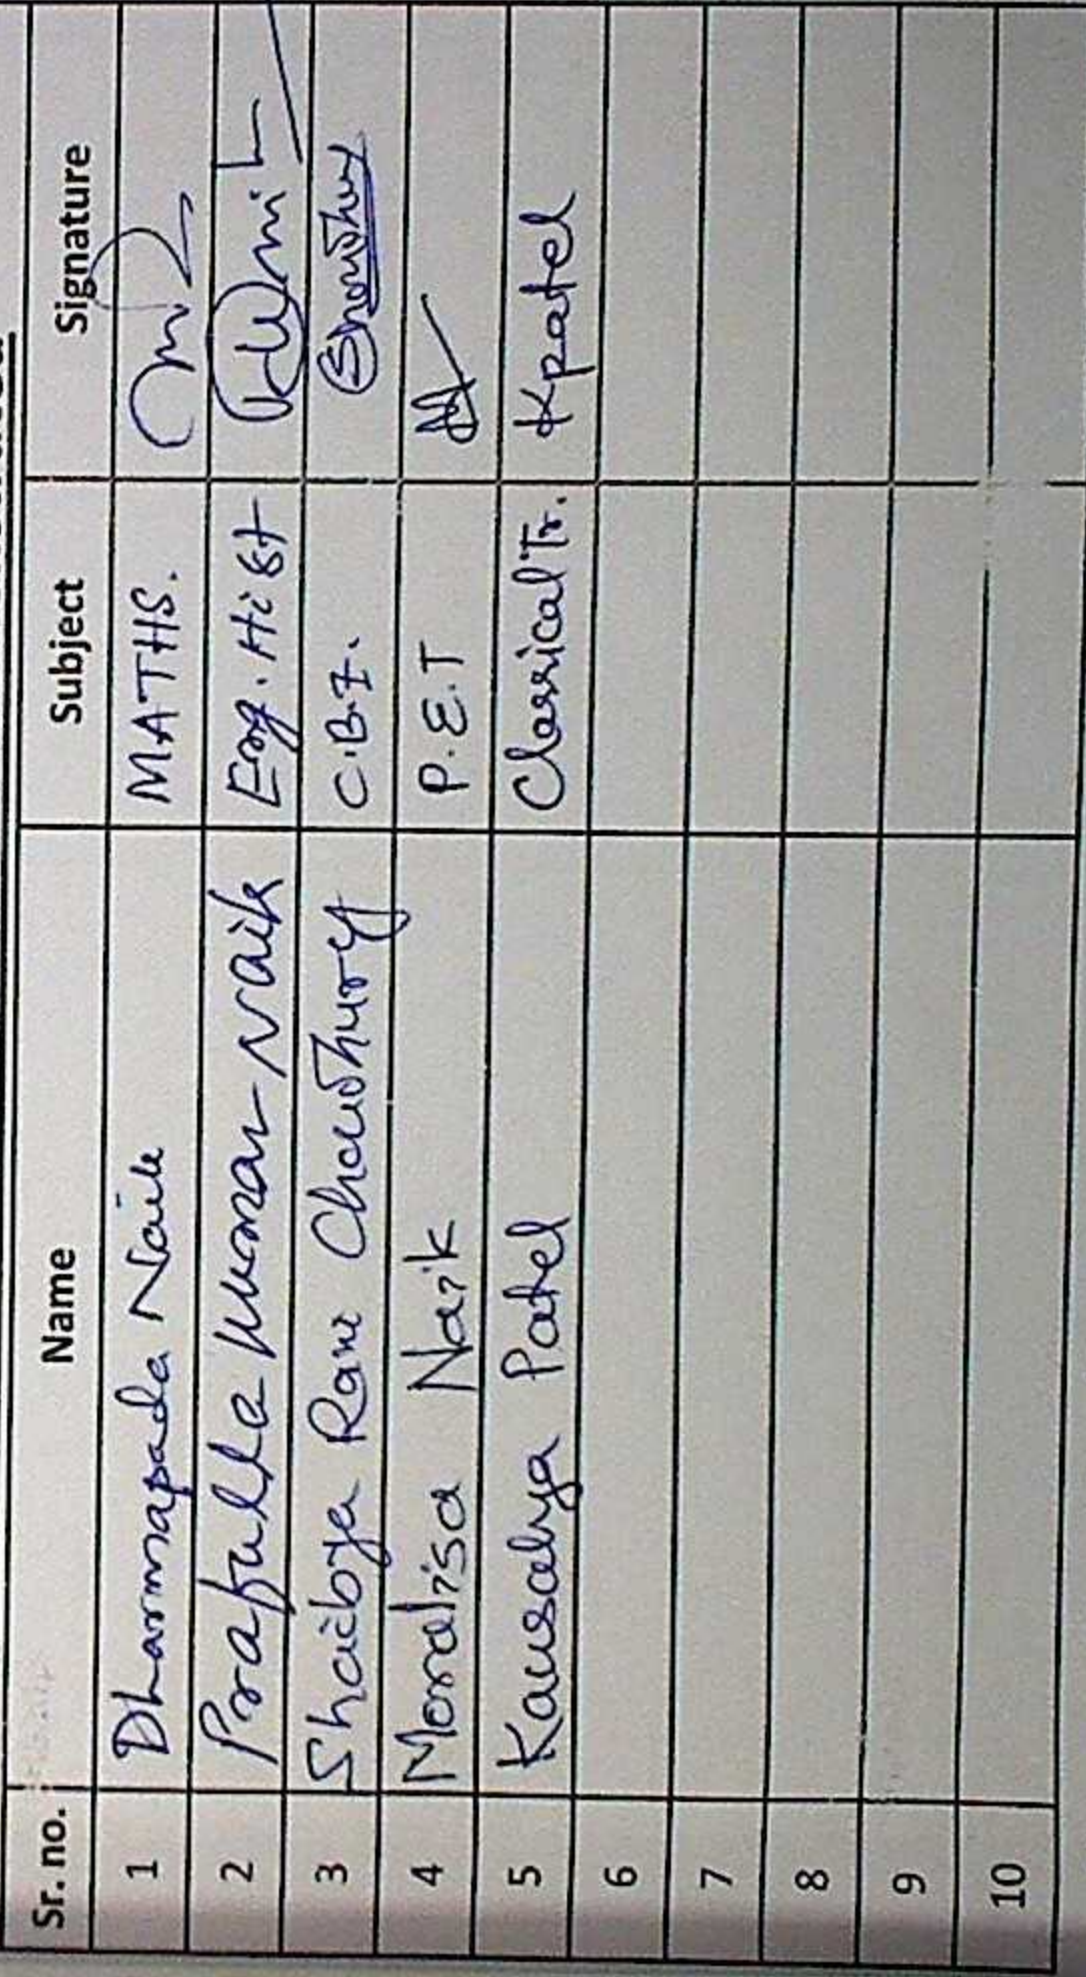 Sr. no. Name Subject Signature
1 Dharmapada Naik MATHS.
2 Prafulla Kumar Naik Eng. Hist
3 Shaibya Rani Chowdhury C.B.Z. Chowdhury
4 Monalisa Naik P.E.T
5 Kausalya Patel Classical Tr. Kpatel
6
7
8
9
10